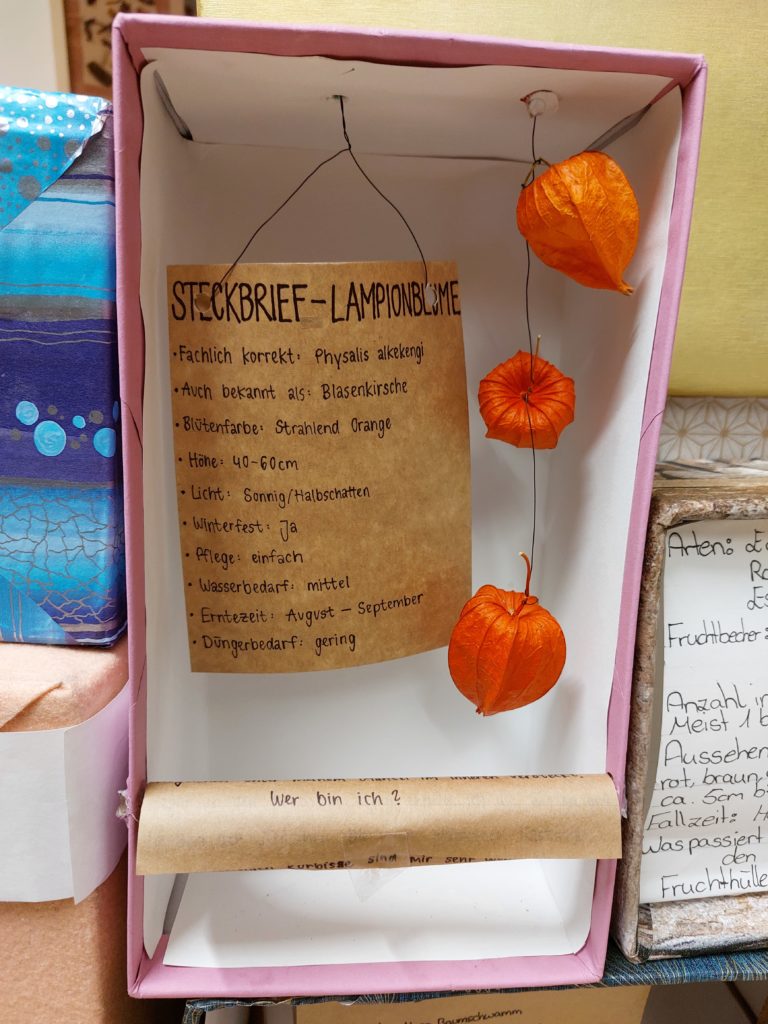 STECKBRIEF - LAMPIONBLUME
• Fachlich korrekt: Physalis alkekengi
• Auch bekannt als: Blasenkirsche
• Blütenfarbe: Strahlend Orange
• Höhe: 40-60cm
• Licht: Sonnig/Halbschatten
• Winterfest: Ja
• Pflege: einfach
• Wasserbedarf: mittel
• Erntezeit: August - September
• Düngerbedarf: gering
Wer bin ich?
Kürbisse sind mir sehr
Arten:
Fruchtbecher:
Anzahl in
Meist 1 b
Aussehen
rot, braun
ca. 5cm b
Fallzeit: H
Was passiert
den
Fruchthülle
Baumschwamm